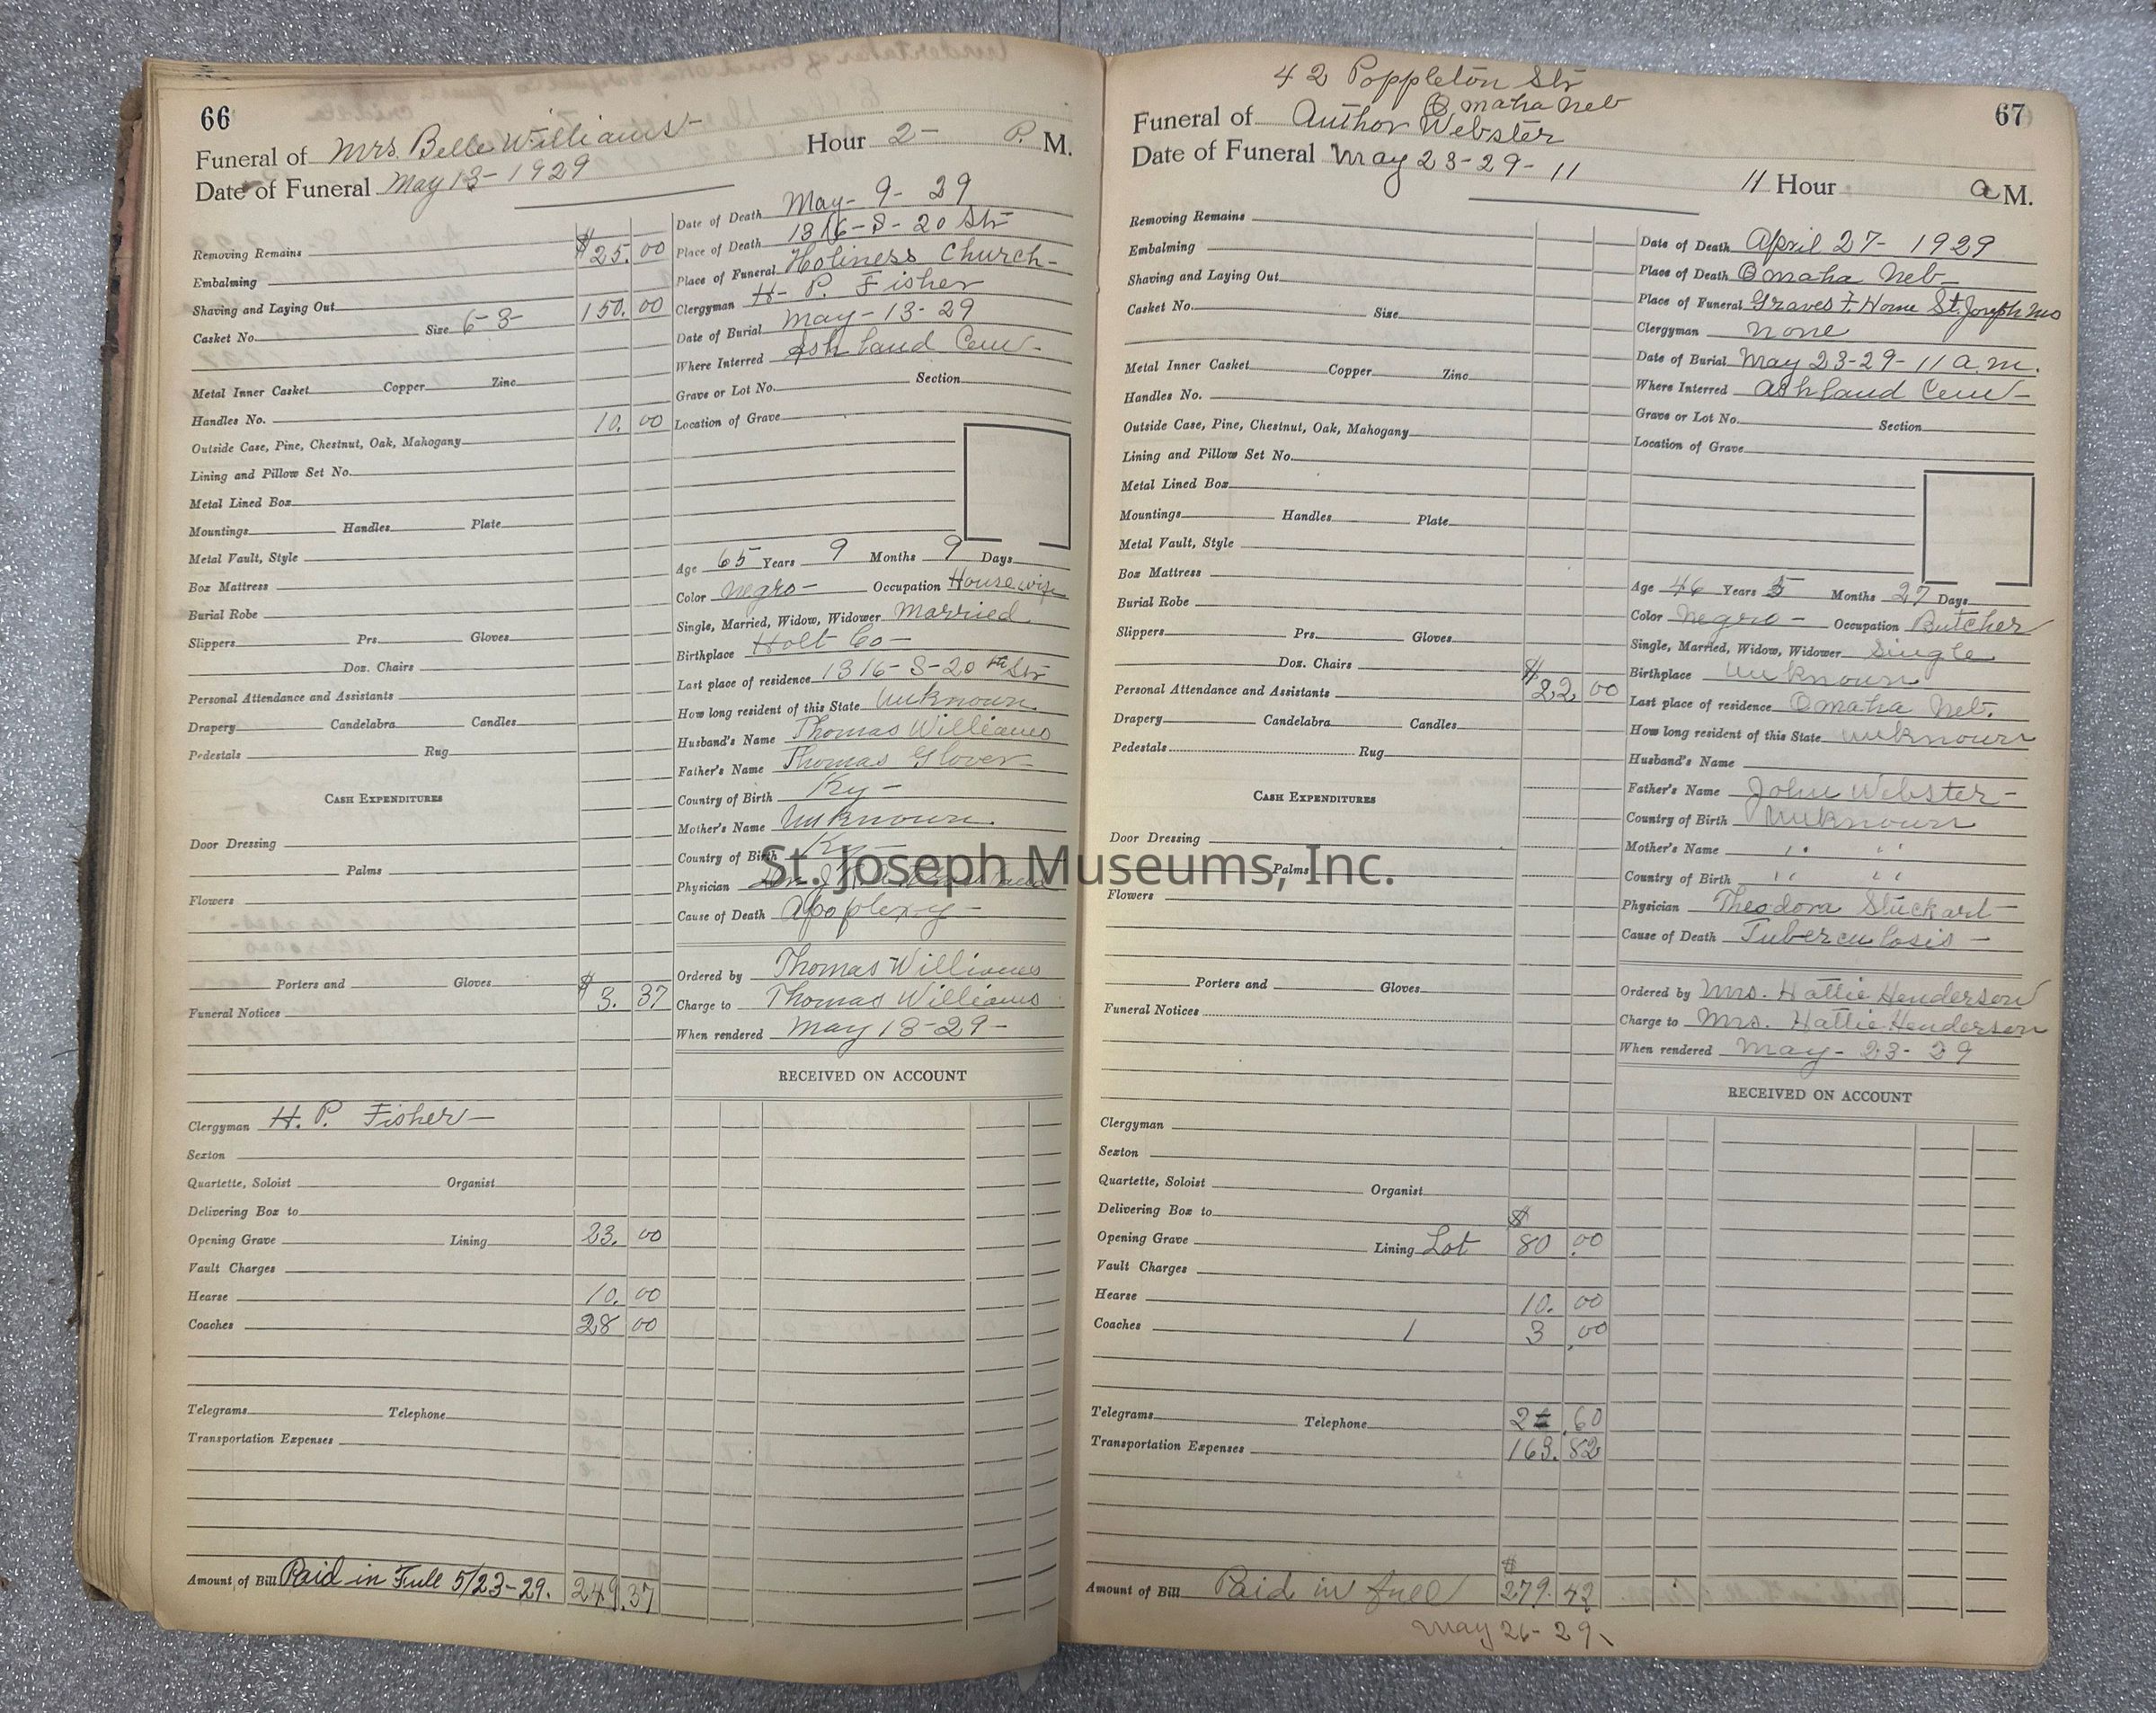 66
Funeral of Mrs. Belle Williams Hour 2- P. M.
Date of Funeral May 13- 1929
Removing Remains $25.00
Embalming
Shaving and Laying Out 150.00
Casket No. Size 6-3-
Metal Inner Casket Copper Zinc
Handles No. 10.00
Outside Case, Pine, Chestnut, Oak, Mahogany
Lining and Pillow Set No.
Metal Lined Box
Mountings Handles Plate
Metal Vault, Style
Box Mattress
Burial Robe
Slippers Prs. Gloves
Doz. Chairs
Personal Attendance and Assistants
Drapery Candelabra Candles
Pedestals Rug
CASH EXPENDITURES
Door Dressing
Palms
Flowers
Porters and Gloves $3.37
Funeral Notices
Clergyman H. P. Fisher-
Sexton
Quartette, Soloist Organist
Delivering Box to
Opening Grave Lining 23.00
Vault Charges
Hearse 10.00
Coaches 28 00
Telegrams Telephone
Transportation Expenses
Amount of Bill Paid in Full 5/23-29. 249.37
Date of Death May- 9- 29
Place of Death 1316-S-20 Str
Place of Funeral Holiness Church-
Clergyman H- P. Fisher
Date of Burial May-13-29
Where Interred Ashland Cem-
Grave or Lot No. Section
Location of Grave
Age 65 Years 9 Months 9 Days
Color Negro- Occupation Housewife
Single, Married, Widow, Widower Married
Birthplace Holt Co-
Last place of residence 1316-S-20th Str
How long resident of this State Unknown
Husband's Name Thomas Williams
Father's Name Thomas Glover-
Country of Birth Ky-
Mother's Name Unknown.
Country of Birth Ky-
Physician
Cause of Death Apoplexy-
Ordered by Thomas Williams
Charge to Thomas Williams
When rendered May 13-29-
RECEIVED ON ACCOUNT
42 Poppleton Str
Omaha Neb
67
Funeral of Author Webster
Date of Funeral May 23-29-11 11 Hour a M.
Removing Remains
Embalming
Shaving and Laying Out
Casket No. Size
Metal Inner Casket Copper Zinc
Handles No.
Outside Case, Pine, Chestnut, Oak, Mahogany
Lining and Pillow Set No.
Metal Lined Box
Mountings Handles Plate
Metal Vault, Style
Box Mattress
Burial Robe
Slippers Prs. Gloves
Doz. Chairs
Personal Attendance and Assistants $22.00
Drapery Candelabra Candles
Pedestals Rug
CASH EXPENDITURES
Door Dressing
Palms
Flowers
Porters and Gloves
Funeral Notices
Clergyman
Sexton
Quartette, Soloist Organist
Delivering Box to
Opening Grave Lining Lot $80.00
Vault Charges
Hearse 10.00
Coaches 1 3.00
Telegrams Telephone 2.60
Transportation Expenses 163.82
Amount of Bill Paid in full $279.42
May 26-29
Date of Death April 27- 1929
Place of Death Omaha Neb-
Place of Funeral Graves F. Home St. Joseph Mo
Clergyman none
Date of Burial May 23-29-11 a.m.
Where Interred Ashland Cem-
Grave or Lot No. Section
Location of Grave
Age 46 Years 5 Months 27 Days
Color Negro- Occupation Butcher
Single, Married, Widow, Widower Single
Birthplace Unknown
Last place of residence Omaha Neb.
How long resident of this State unknown
Husband's Name
Father's Name John Webster-
Country of Birth Unknown
Mother's Name " "
Country of Birth " "
Physician Theodora Stuckart-
Cause of Death Tuberculosis-
Ordered by Mrs. Hattie Henderson
Charge to Mrs. Hattie Henderson
When rendered May- 23- 29
RECEIVED ON ACCOUNT
St. Joseph Museums, Inc.